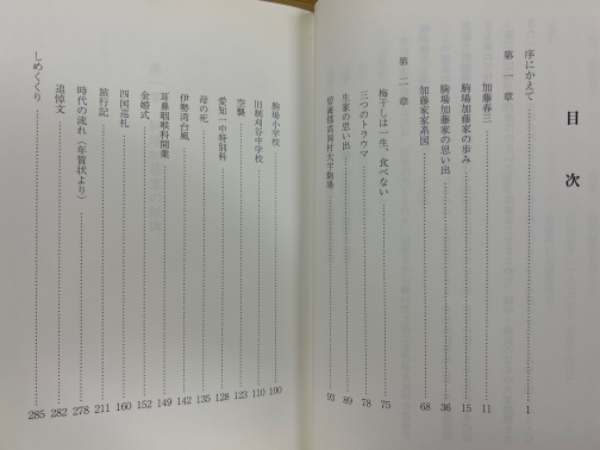 目次
序にかえて 1
第一章
加藤春三 11
駒場加藤家の歩み 15
駒場加藤家の思い出 36
加藤家家系図 68
第二章
梅干しは一生、食べない 75
三つのトラウマ 78
生家の思い出 89
碧海郡高岡村大字駒場 93
駒場小学校 100
旧制刈谷中学校 110
空襲 123
愛知一中特別科 128
母の死 135
伊勢湾台風 142
耳鼻咽喉科開業 149
金婚式 152
四国巡礼 160
旅行記 211
時代の流れ（年賀状より） 278
追悼文 282
しめくくり 285